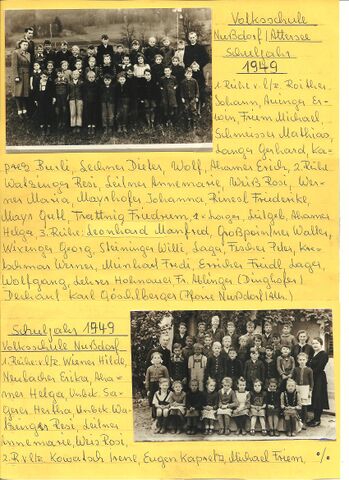 Volksschule
Nußdorf/Attersee
Schuljahr
1949
1. Reihe v. l/r. Roither
Johann, Auinger Er-
win, Friem Michael,
Schmeisser Mathias,
Langer Gerhard, Ka-
preg Burli, Lechner Dieter, Wolf, Ahamer Erich, 2. Reihe
Watzinger Resi, Leitner Annemarie, Weiß Rosi, Wer-
ner Maria Mayrhofer Johanna, Rinesl Friederike,
Mays Gutl, Trattnig Friedrun, 2 x Lager, Litzlgeb. Ahamer
Helga 3. Reihe: Leonhard Manfred, Großpointner Walter,
Wixinger Georg, Steininger Willi, Lager Fischer Peter, Kre-
tschmar Werner, Meinhart Fredi, Ennicher Friedl, Lager,
Wolfgang, Lehrer Hohnauer Fr. Ablinger (Dinghofer)
Dechant Karl Göschlberger (Pfarre Nußdorf/Att.)
Schuljahr 1949
Volksschule Nußdorf
1. Reihe: v. l/r. Wiener Hilde,
Neubacher Erika, Aha-
mer Helga, Unbek. Sa-
gerer Hertha, Unbek. Wa-
tzinger Resi, Leitner
Annemarie, Weis Rosi,
2. R v. l/r. Kowatsch Irene, Eugen Kapretz, Michael Friem, %